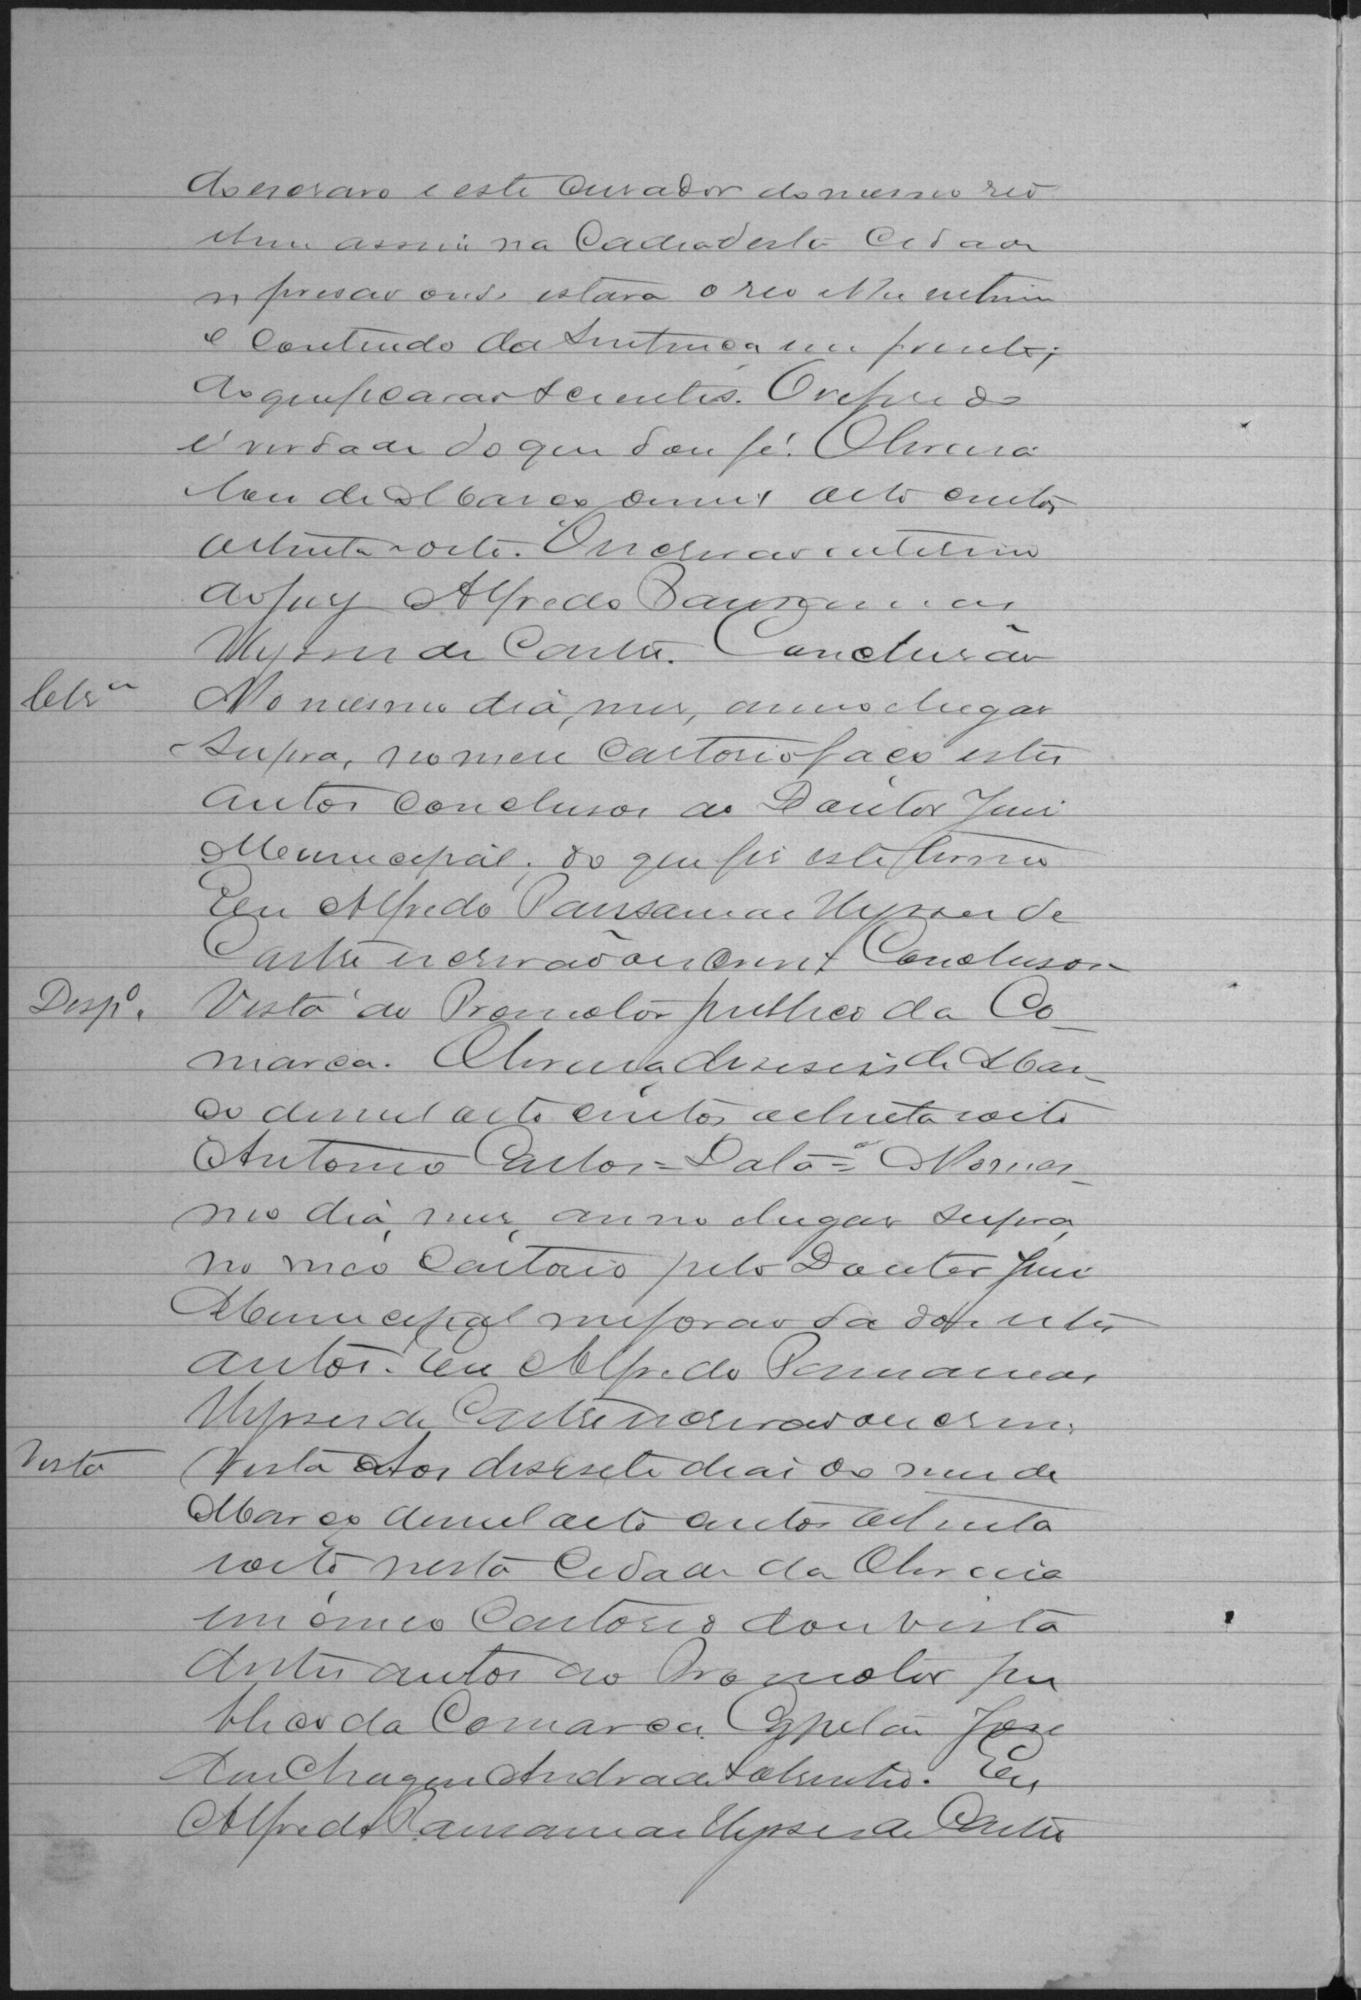 do escravo e este Curador do mesmo reo
e bem assim na Cadea desta Cidade
e prisão onde estava o reo
o contendo da Sentença em frente;
do que ficarão scientes. O referido
é verdade do que dou fé. Oliveira
de Março de mil oito centos
oitenta e oito. O escrivão interino
do jury Alfredo Pausanias
Ulysses de Castro. Conclusão
Cls.am No mesmo dia, mes, anno e lugar
supra, no meu Cartorio faço estes
autos conclusos ao Doutor Juiz
Municipal; do que fis este termo
Eu Alfredo Pausanias Ulysses de
Castro escrivão o escrevi Conclusos
Desp.o Vista ao Promotor publico da Co-
marca. Oliveira, deseseis de Mar-
ço de mil oito centos oitenta e oito
Antonio Carlos = Data = No mes-
mo dia, mes, anno e lugar supra,
no meo Cartorio pelo Doutor Juiz
Municipal me forão dados estes
autos. Eu Alfredo Pausanias
Ulysses de Castro escrivão o escrevi.
Vista Vista Aos desesete dias do mes de
Março de mil oito centos oitenta
e oito nesta Cidade da Oliveira
em o meo Cartorio dou vista
destes autos ao Promotor pu
blico da Comarca Capitão José
das Chagas Andrade Sobrinho. Eu
Alfredo Pausanias Ulysses de Castro